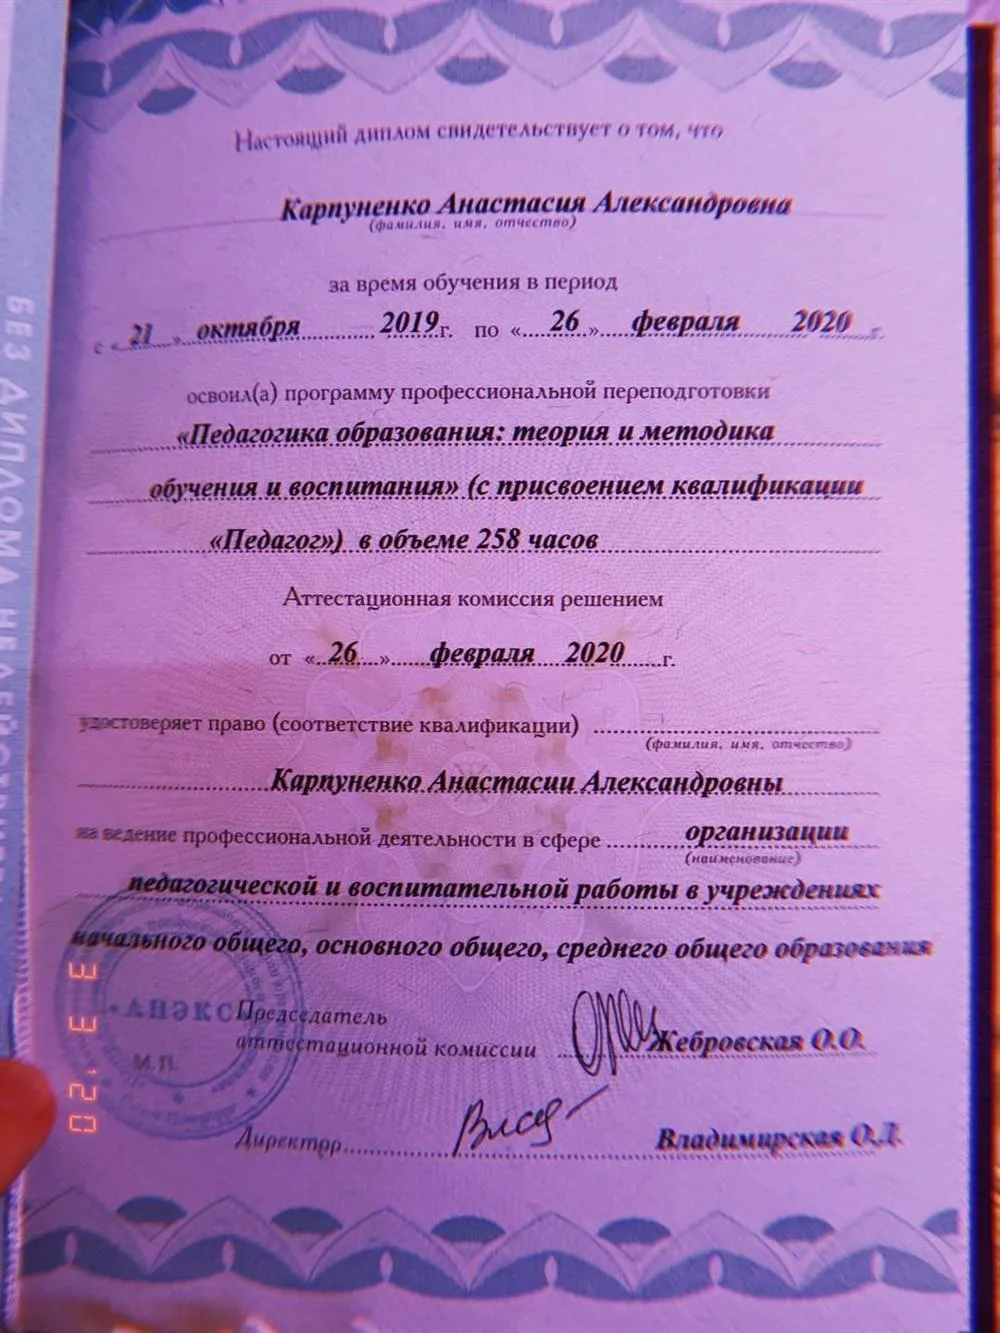 Настоящий диплом свидетельствует о том, что
Карпуненко Анастасия Александровна
(фамилия, имя, отчество)
за время обучения в период
с « 21 » октября 2019 г. по « 26 » февраля 2020 г.
освоил(а) программу профессиональной переподготовки
«Педагогика образования: теория и методика
обучения и воспитания» (с присвоением квалификации
«Педагог») в объеме 258 часов
Аттестационная комиссия решением
от « 26 » февраля 2020 г.
удостоверяет право (соответствие квалификации)
(фамилия, имя, отчество)
Карпуненко Анастасии Александровны
на ведение профессиональной деятельности в сфере организации
(наименование)
педагогической и воспитательной работы в учреждениях
начального общего, основного общего, среднего общего образования
«АНЭКС
Председатель
аттестационной комиссии Жебровская О.О.
М.П.
Директор Владимирская О.Д.
БЕЗ ДИПЛОМА НЕДЕЙСТВИТ
3 3 '20